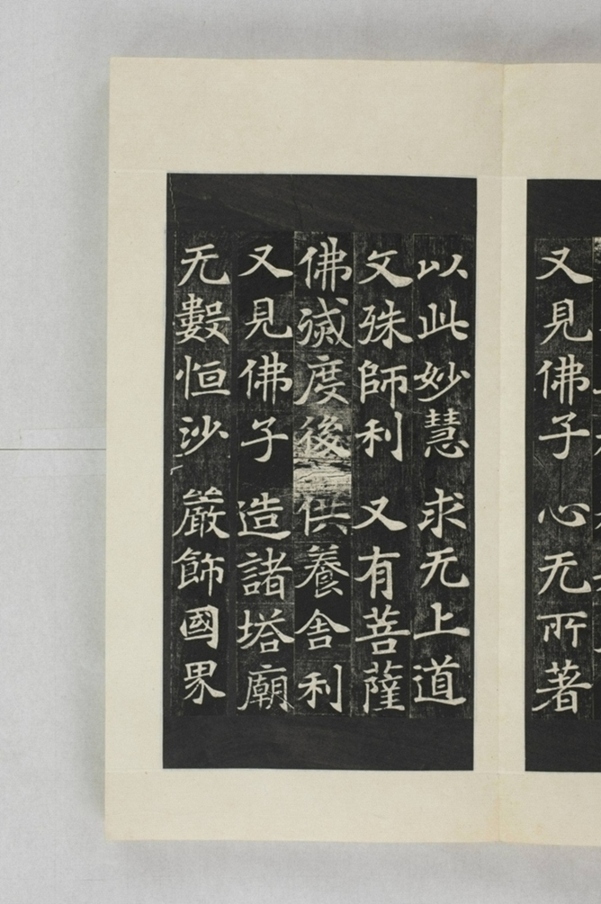 又見佛子 心无所著
以此妙慧 求无上道
文殊師利 又有菩薩
佛滅度後 供養舍利
又見佛子 造諸塔廟
无數恒沙 嚴飾國界